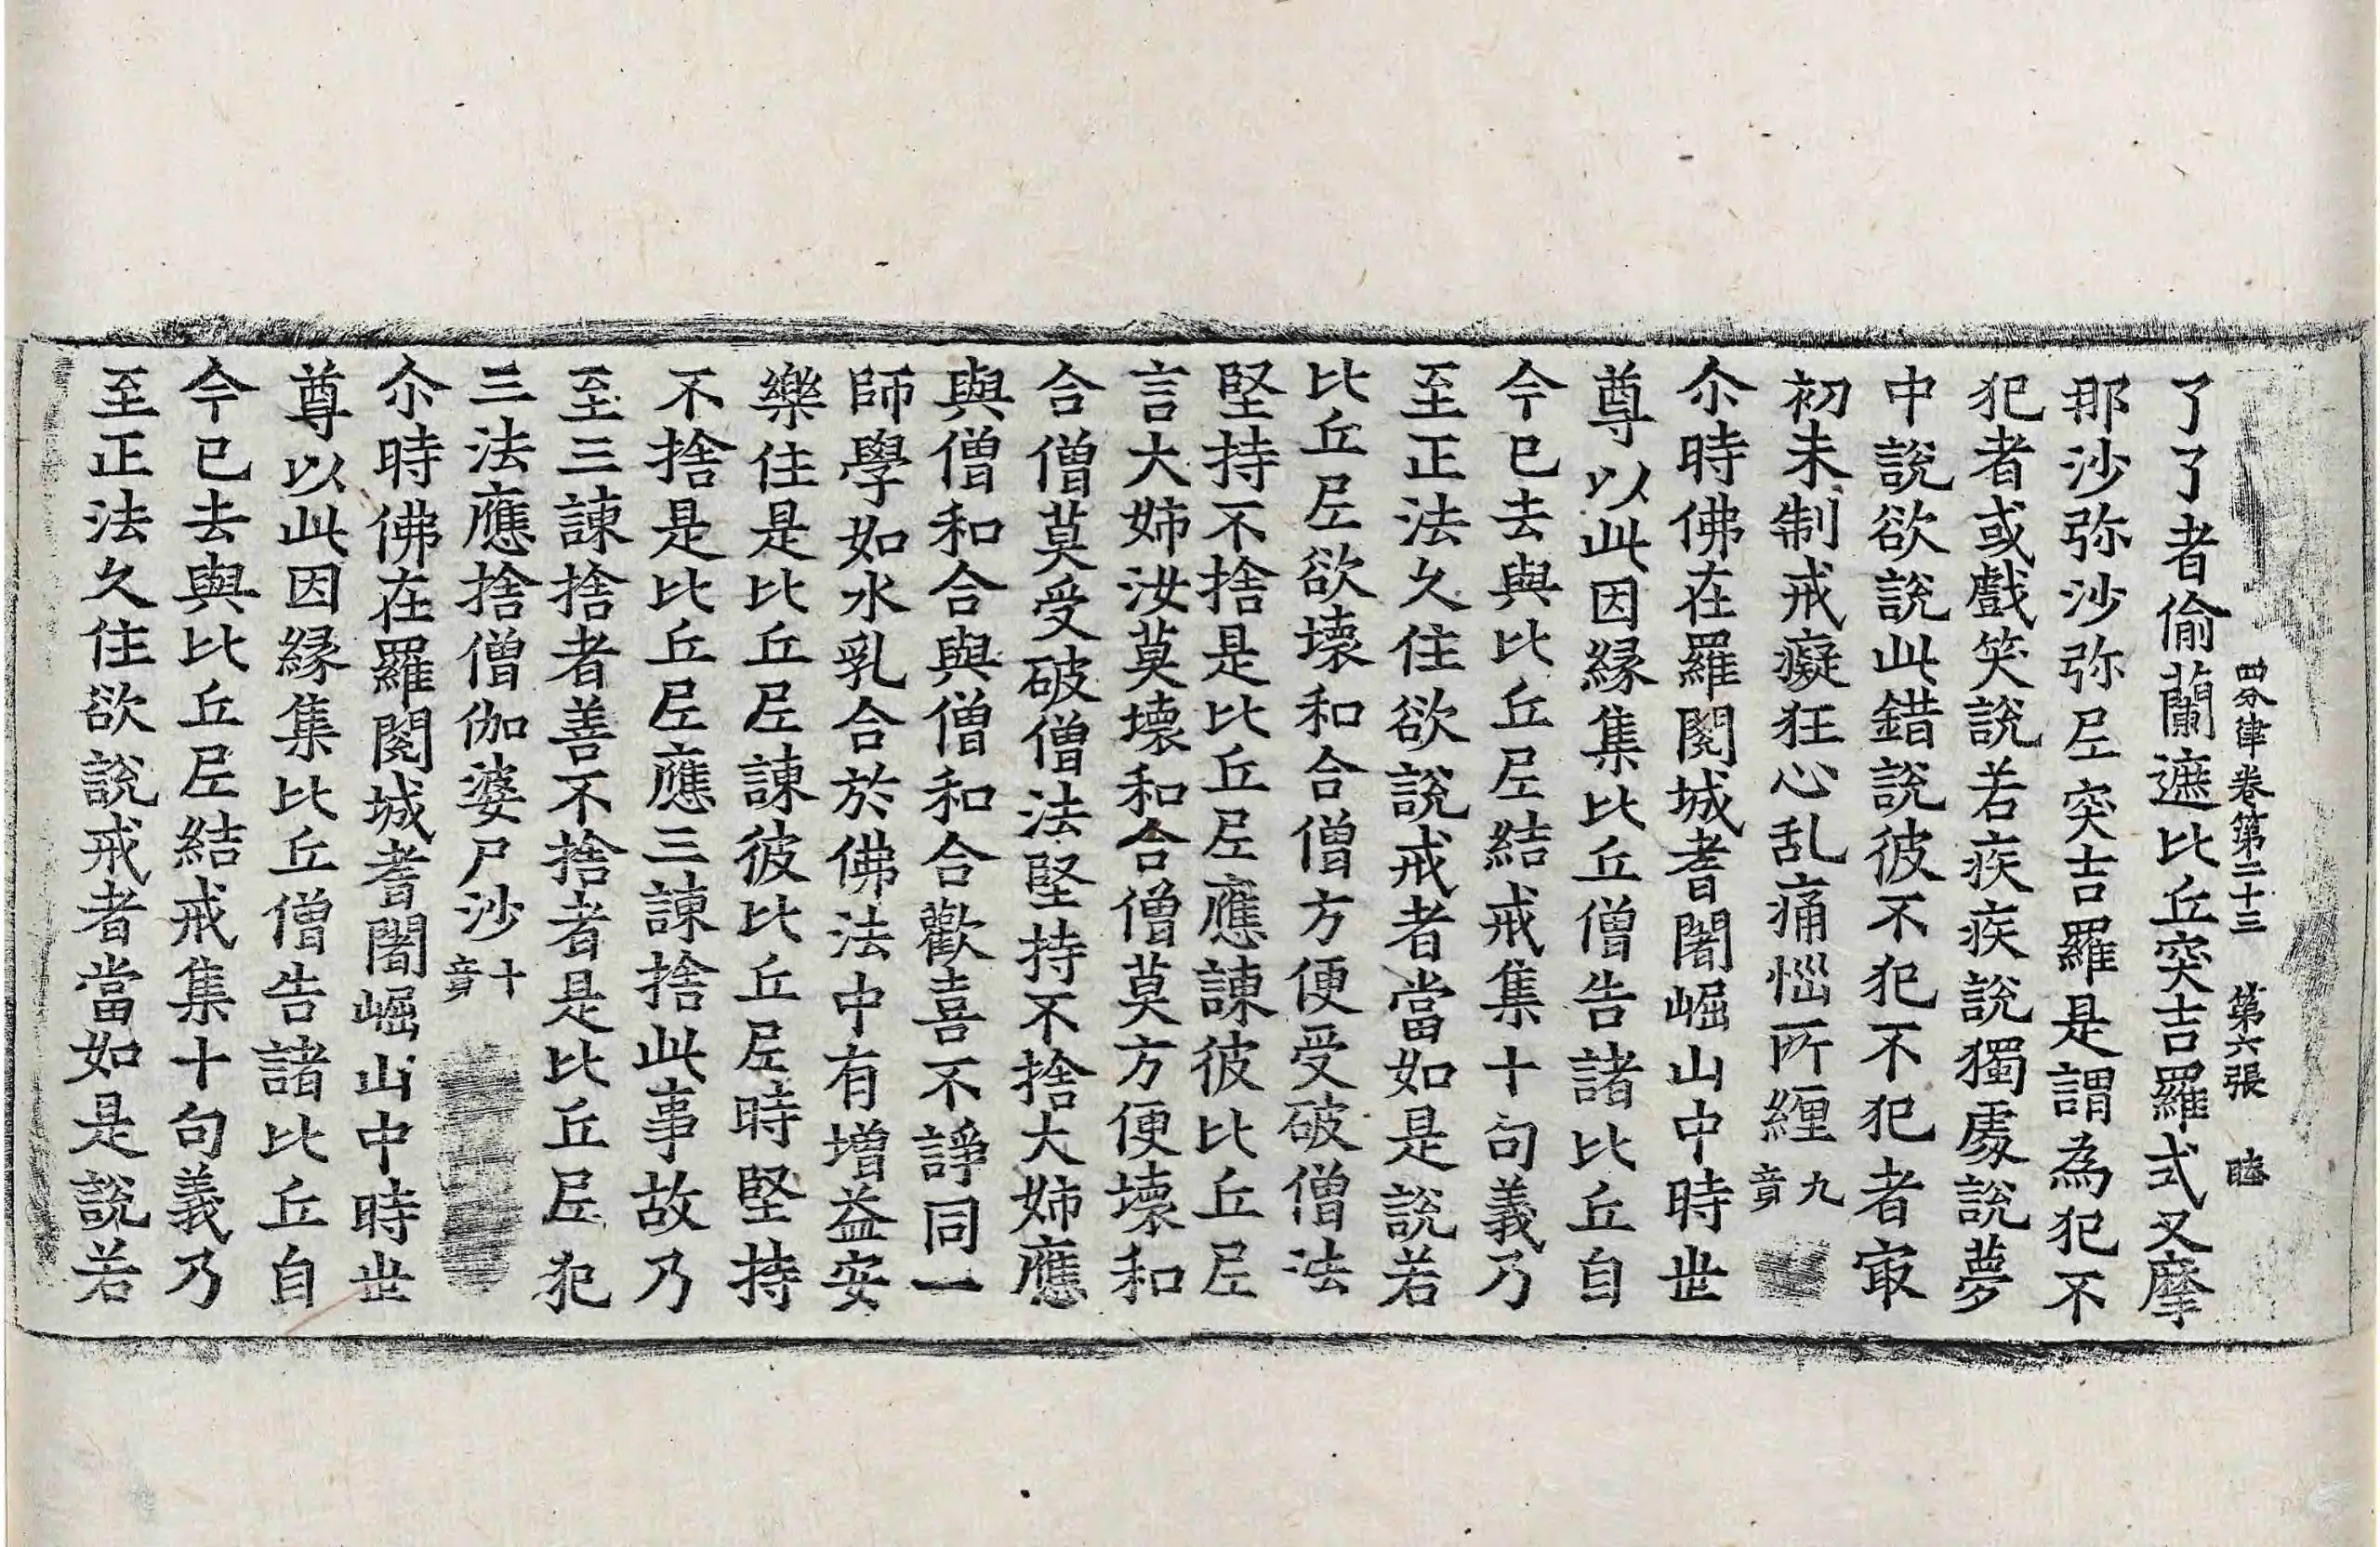 四分律卷第二十三 第六張 睦
了了者偷蘭遮比丘突吉羅式叉摩
那沙弥沙弥尼突吉羅是謂為犯不
犯者或戲笑說若疾疾說獨處說夢
中說欲說此錯說彼不犯不犯者㝡
初未制戒癡狂心乱痛惱所纏九竟
尒時佛在羅閱城耆闍崛山中時世
尊以此因緣集比丘僧告諸比丘自
今已去與比丘尼結戒集十句義乃
至正法久住欲說戒者當如是說若
比丘尼欲壞和合僧方便受破僧法
堅持不捨是比丘尼應諫彼比丘尼
言大姉汝莫壞和合僧莫方便壞和
合僧莫受破僧法堅持不捨大姉應
與僧和合與僧和合歡喜不諍同一
師學如水乳合於佛法中有增益安
樂住是比丘尼諫彼比丘尼時堅持
不捨是比丘尼應三諫捨此事故乃
至三諫捨者善不捨者是比丘尼犯
三法應捨僧伽婆尸沙十竟
尒時佛在羅閱城耆闍崛山中時世
尊以此因緣集比丘僧告諸比丘自
今已去與比丘尼結戒集十句義乃
至正法久住欲說戒者當如是說若